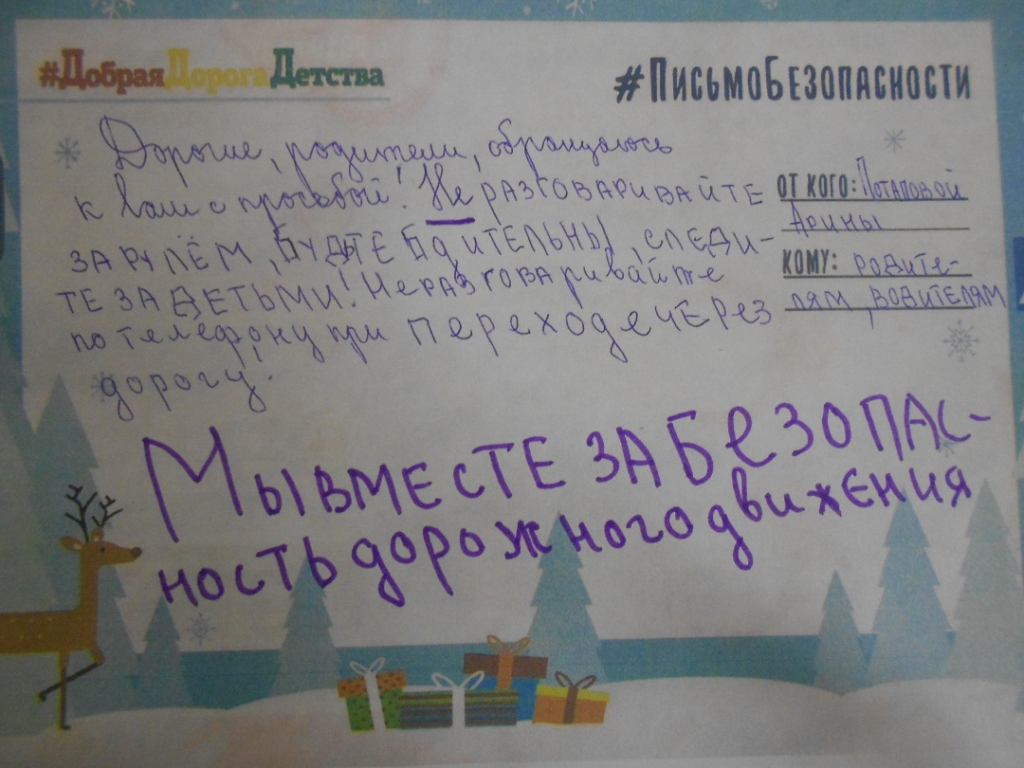 #ДобраяДорогаДетства
#ПисьмоБезопасности
Дорогие, родители, обращаюсь
к вам с просьбой! Не РАЗГОВАРИВАЙТЕ
ЗА РУЛЁМ, БУДЬТЕ БДИТЕЛЬНЫ, СЛЕДИ-
ТЕ ЗА ДЕТЬМИ! Не РАЗГОВАРИВАЙТЕ
по телефону при переходе ЧЕРЕЗ
дорогу.
ОТ КОГО: Потаповой
Арины
КОМУ: родите-
лям, водителям
МЫ ВМЕСТЕ ЗА БеЗОПАС-
НОСТЬ дорожного движения